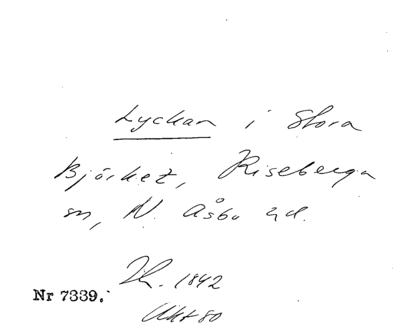 Lyckan i Stora
Björket, Riseberga
sn, N. Åsbo hd.
Th. 1842
Nr 7339.
Ukt 80